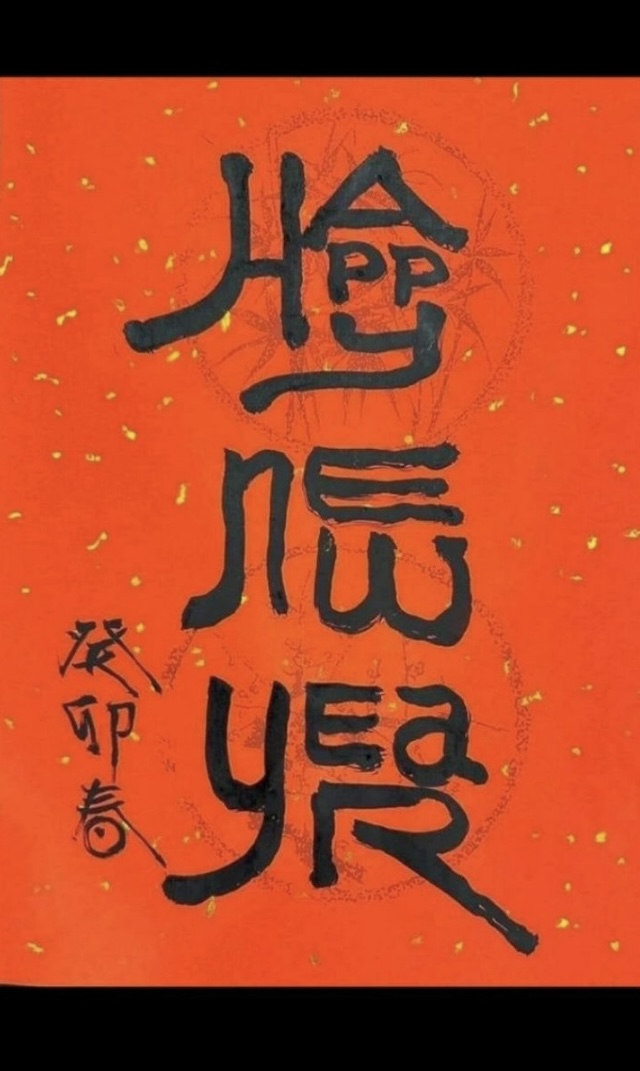 HAppy
nEw
yEaR
癸卯春